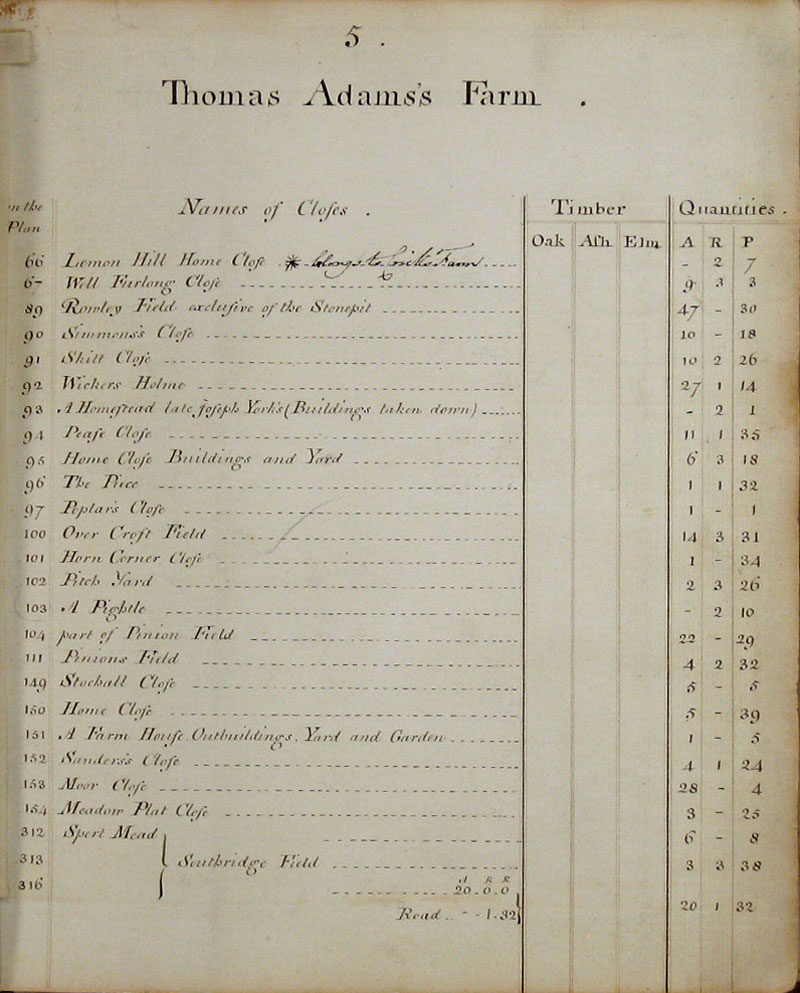 5 .
Thomas Adams's Farm .
in the Plan Names of Closes . Timber Quantities .
Oak Ash Elm A R P
66 Lemon Hill Home Close * belongs to Farm - 2 7
6- Well Furlong Close 9 3 3
89 Rowley Field exclusive of the Stonepit 47 - 30
90 Simmons's Close 10 - 18
91 Skitt Close 10 2 26
92 Wickers Holme 27 1 14
93 A Homestead late Joseph York's (Buildings taken down) - 2 1
94 Pease Close 11 1 35
95 Home Close Buildings and Yard 6 3 18
96 The Piece 1 1 32
97 Peplar's Close 1 - 1
100 Over Croft Field 14 3 31
101 Horn Corner Close 1 - 34
102 Pitch Yard 2 3 26
103 A Pightle - 2 10
104 part of Pinion Field 22 - 29
111 Pinions Field 4 2 32
149 Stockall Close 5 - 5
150 Home Close 5 - 39
151 A Farm House Outbuildings, Yard and Garden 1 - 5
152 Sanders's Close 4 1 24
153 Moor Close 28 - 4
154 Meadow Plat Close 3 - 25
312 Spert Mead 6 - 8
313 Southridge Field 3 3 38
316 A R R
20 . 0 . 0
20 1 32
Road - - 1 . 32